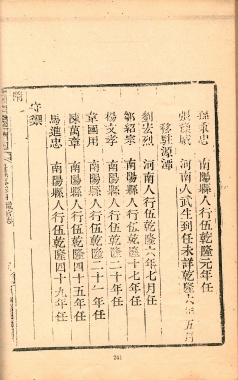 孫秉忠　南陽縣人行伍乾隆元年任
張漢威　河南人武生到任未詳乾隆六年五月
移駐源潭
劉宏烈　河南人行伍乾隆六年七月任
鄒紹宗　南陽縣人行伍乾隆十七年任
楊文孝　南陽縣人行伍乾隆二十年任
章國用　南陽縣人行伍乾隆二十一年任
陳萬章　南陽縣人行伍乾隆四十五年任
馬進忠　南陽縣人行伍乾隆四十九年任
守禦
241